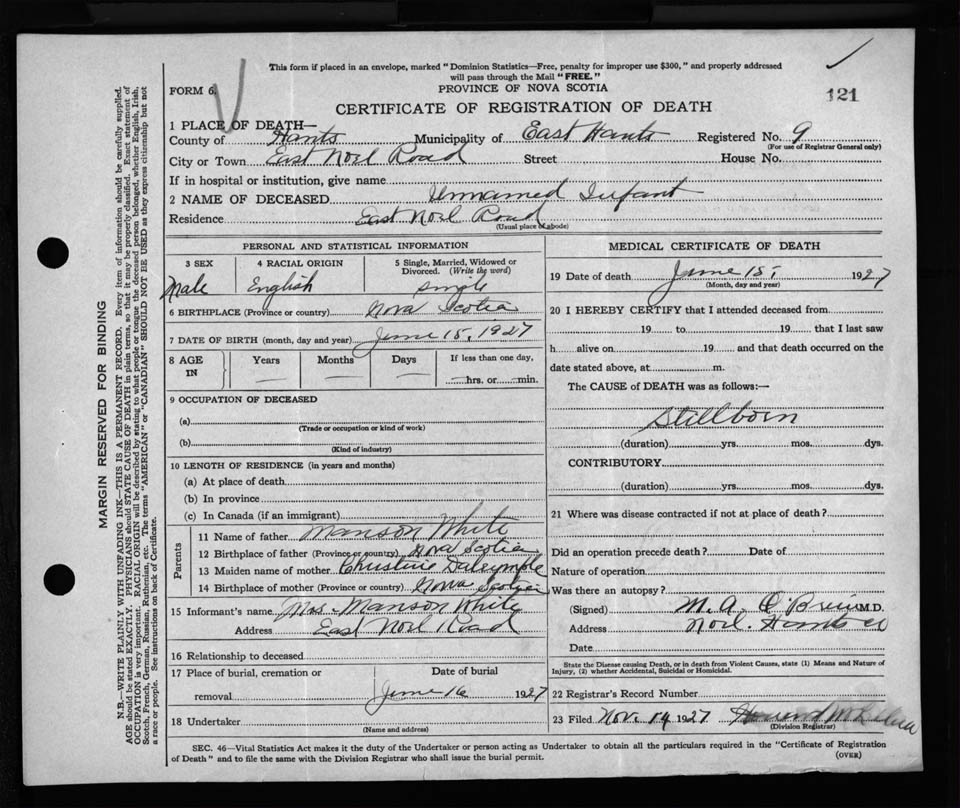 This form if placed in an envelope, marked "Dominion Statistics—Free, penalty for improper use $300," and properly addressed
will pass through the Mail "FREE."
FORM 6.
PROVINCE OF NOVA SCOTIA
121
CERTIFICATE OF REGISTRATION OF DEATH
1 PLACE OF DEATH—
County of Hants Municipality of East Hants Registered No. 9
(For use of Registrar General only)
City or Town East Noel Road Street House No.
If in hospital or institution, give name
2 NAME OF DECEASED Unnamed Infant
Residence East Noel Road
(Usual place of abode)
PERSONAL AND STATISTICAL INFORMATION
3 SEX 4 RACIAL ORIGIN 5 Single, Married, Widowed or Divorced. (Write the word)
Male English Single
6 BIRTHPLACE (Province or country) Nova Scotia
7 DATE OF BIRTH (month, day and year) June 15, 1927
8 AGE IN Years Months Days If less than one day,
hrs. or min.
9 OCCUPATION OF DECEASED
(a)
(Trade or occupation or kind of work)
(b)
(Kind of industry)
10 LENGTH OF RESIDENCE (in years and months)
(a) At place of death
(b) In province
(c) In Canada (if an immigrant)
Parents
11 Name of father Manson White
12 Birthplace of father (Province or country) Nova Scotia
13 Maiden name of mother Christine Dalrymple
14 Birthplace of mother (Province or country) Nova Scotia
15 Informant's name Mrs Manson White
Address East Noel Road
16 Relationship to deceased
17 Place of burial, cremation or removal Date of burial
June 16 1927
18 Undertaker
(Name and address)
MEDICAL CERTIFICATE OF DEATH
19 Date of death June 15, 1927
(Month, day and year)
20 I HEREBY CERTIFY that I attended deceased from
19 to 19 that I last saw
h alive on 19 and that death occurred on the
date stated above, at m.
The CAUSE of DEATH was as follows:—
Stillborn
(duration) yrs. mos. dys.
CONTRIBUTORY
(duration) yrs. mos. dys.
21 Where was disease contracted if not at place of death?
Did an operation precede death? Date of
Nature of operation
Was there an autopsy?
(Signed) M. A. O'Brien M.D.
Address Noel. Hants Co
Date
State the Disease causing Death, or in death from Violent Causes, state (1) Means and Nature of
Injury, (2) whether Accidental, Suicidal or Homicidal.
22 Registrar's Record Number
23 Filed Nov. 14 1927 Howard
(Division Registrar)
SEC. 46—Vital Statistics Act makes it the duty of the Undertaker or person acting as Undertaker to obtain all the particulars required in the "Certificate of Registration
of Death" and to file the same with the Division Registrar who shall issue the burial permit.
(OVER)
MARGIN RESERVED FOR BINDING
N.B.—WRITE PLAINLY WITH UNFADING INK—THIS IS A PERMANENT RECORD. Every item of information should be carefully supplied.
AGE should be stated EXACTLY. PHYSICIANS should STATE CAUSE OF DEATH in plain terms, so that it may be properly classified. Exact statement of
OCCUPATION is very important. RACIAL ORIGIN will be described by stating to what people or tongue the deceased person belonged, whether English, Irish,
Scotch, French, German, Russian, Ruthenian, etc. The terms "AMERICAN" or "CANADIAN" SHOULD NOT BE USED as they express citizenship but not
a race or people. See instructions on back of Certificate.